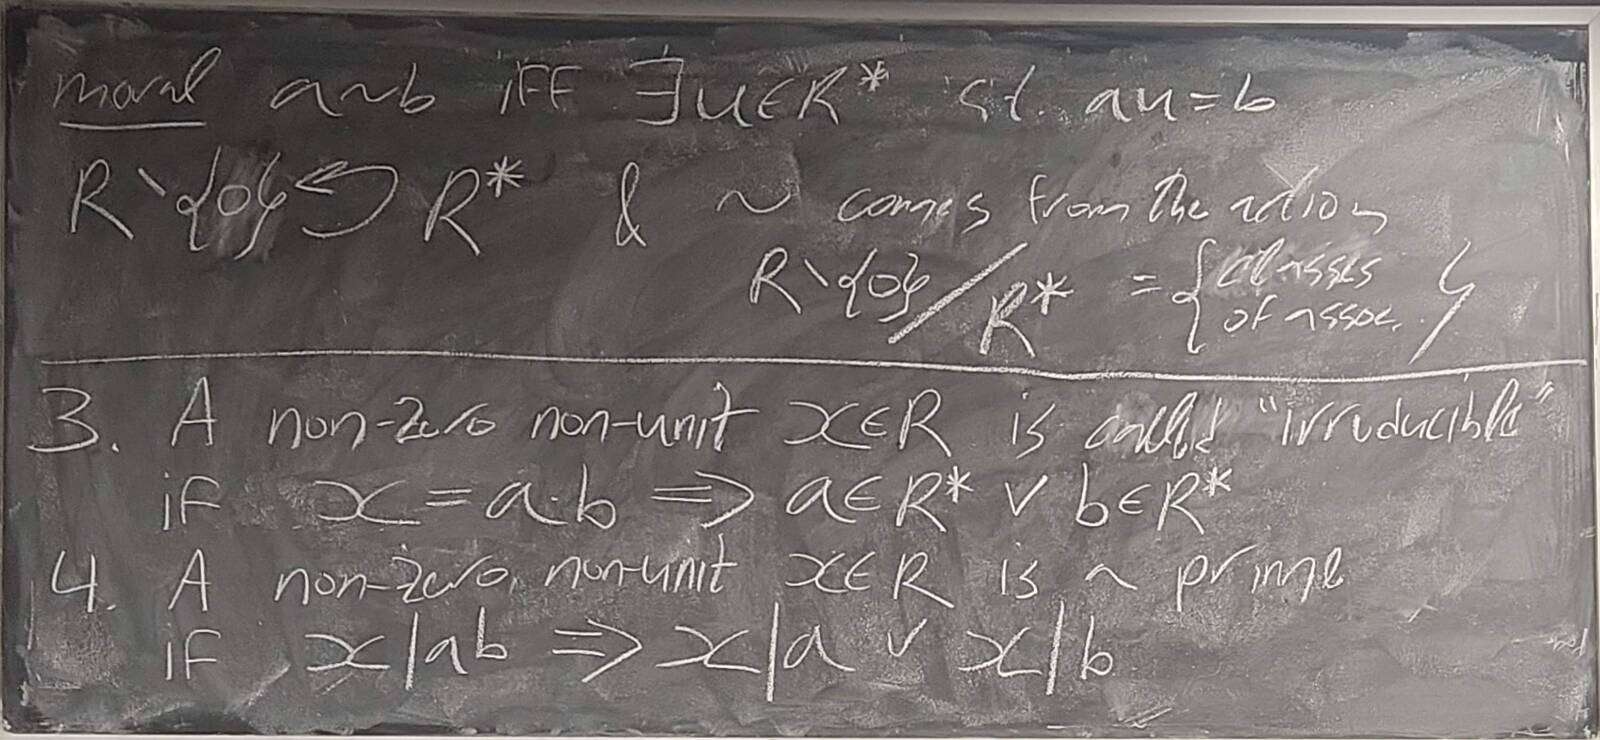 moral a~b iff ∃u∈R* st. au=b
R∖{0}↶R* & ~ comes from the action
R∖{0}/R* = {classes of assoc.}
3. A non-zero non-unit x∈R is called "irruducible"
if x=a·b ⇒ a∈R* ∨ b∈R*
4. A non-zero, non-unit x∈R is a prime
if x|ab ⇒ x|a ∨ x|b